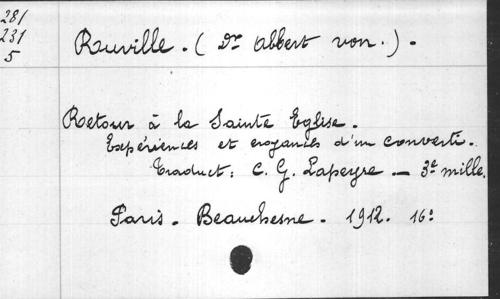 281
231
5
Ruville. (Dr Albert von.).
Retour à la Sainte Eglise.
Expériences et croyances d'un converti.
Traduct: C. G. Lapeyre — 3e mille.
Paris. Beauchesne. 1912. 16: